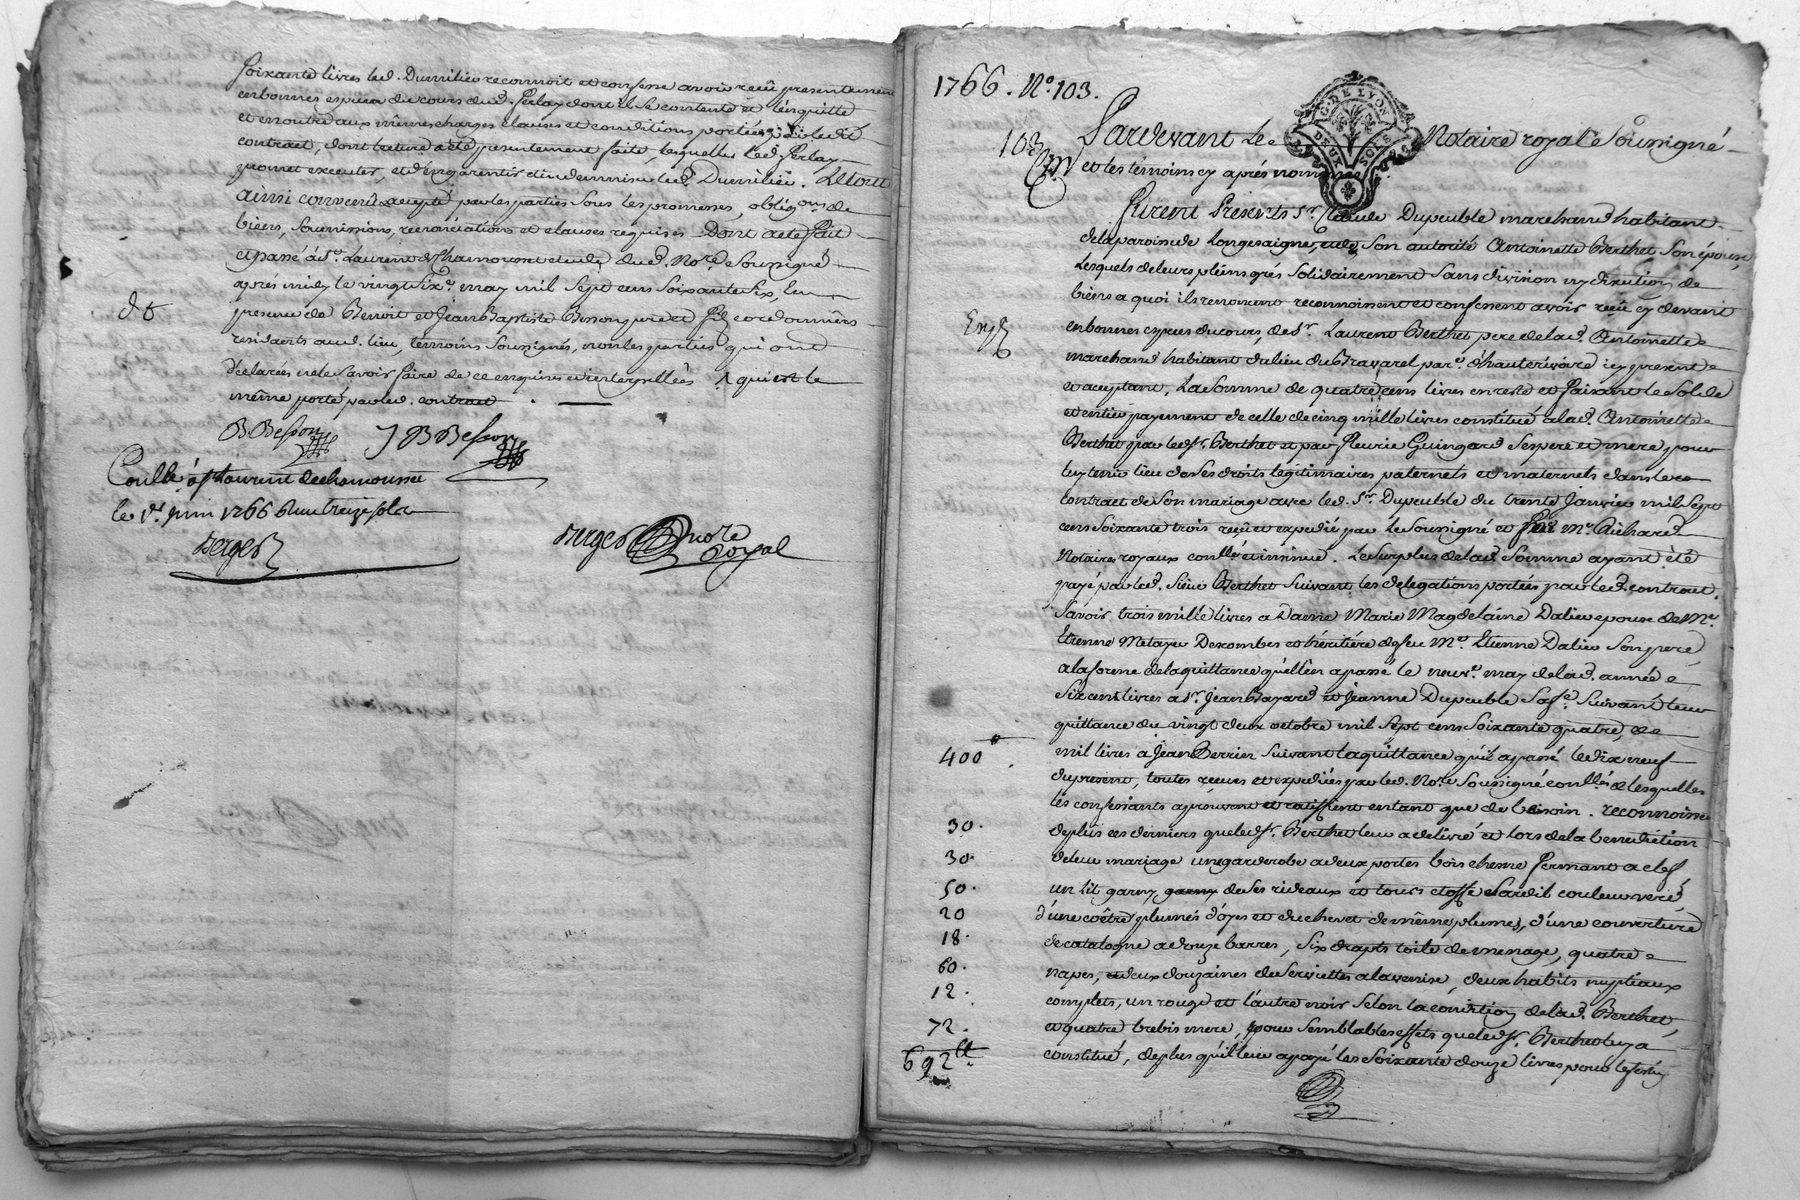 soixante livres led. Dumilieu reconnoit et confesse avoir reçû presentement
en bonnes especes du cours dud. Perlay dont il se contente et l'en quitte
et en outre aux mêmes charges clauses et conditions portées
contract, dont lecture a été presentement faite, lesquelles led. Perlay
promet executer, et d'en garentir et indemniser led. Dumilieu. Le tout
ainsi convenu accepté par les parties sous les promesses, oblig.ons de
biens, soumissions, renonciations et clauses requises Dont acte fait
et passé à S.t Laurent de Chamousset etude dud. No.re soussigné
après midy le vingt six.e may mil sept cens soixante six, En
presence de Benoit et Jean Baptiste Besson pere et fils cordonniers
residants aud. lieu, temoins soussignés, non les parties qui ont
declarées ne le savoir faire de ce enquises et interpellées qui est le
même porté par led. contract
B Besson J B Besson
Conllé à St Laurent de chamousset
le 1.er juin 1766 Reçu treize sols
Berger
Berger no.re royal
1766. N.o 103.
103
G. DE LYON
DEUX SOLS
Pardevant le Notaire royal Soussigné
et les témoins cy après nommés
Furent Presents S.r Claude Dupeuble marchand habitant
de la paroisse de Longesaigne, et de son autorité Antoinette Berthet son épouse,
Lesquels de leurs pleins grés solidairement sans division ny discution de
biens a quoi ils renoncent reconnoissent et confessent avoir reçu cy devant
Exp.é
en bonnes especes du cours, de S.r Laurent Berthet pere de lad. Antoinette
marchand habitant du lieu du Travarel par.e d'hauterivoire icy present
et acceptant, La somme de quatre cens livres en reste et faisant le solde
et entier payement de celle de cinq mille livres constitué a lad. Antoinette
Berthet par led. S.r Berthet et par fleurie Guingard ses pere et mere pour
luy tenir lieu de ses droits legitimaires paternels et maternels dans le
contract de son mariage avec led. S.r Dupeuble du trente Janvier mil sept
cens soixante trois reçû et expedié par le soussigné et M.e Richard
Notaires royaux conllé et insinué. Le surplus de lad. somme ayant été
payé par led. sieur Berthet suivant les delegations portées par led. contract.
savoir trois mille livres a Dame Marie Magdelaine Dalier epouse de M.e
Etienne Metayer Descombes et héritiére de feu M.e Etienne Dalier son pere,
a la forme de la quittance qu'elle en a passé le neuv.e may de lad. année
six cens livres à S.r Jean Bayard et Jeanne Dupeuble sa fe. suivant leur
quittance du vingt deux octobre mil sept cens soixante quatre, et
400 mil livres a Jean Berrier suivant la quittance qu'il a passé le dix neuf
du present, toutes reçues et expediées par led. No.re soussigné conllés desquelles
les confessants aprouvent et ratiffient entant que de besoin. reconnoissent
30. de plus ces derniers que led. S.r Berthet leur a delivré et lors de la benediction
30. de leur mariage une garderobe a deux portes bois chesne fermant a clef
50. un lit garny de ses rideaux et tours etoffe Cardit couleur verd,
20 d'une coëtre plumes d'oyes et du chevet de même plumes, d'une couverture
18. de catalogne a douze barres, six draps toile de menage, quatre
60. napes, et deux douzaines de serviettes a la venise, deux habits nuptiaux
12. complets, un rouge et l'autre noir selon la condition de lad. Berthet,
72. et quatre brebis mere, pour semblables effets que led. S.r Berthet luy a
692 ll constitué, de plus qu'il leur a payé les soixante douze livres pour